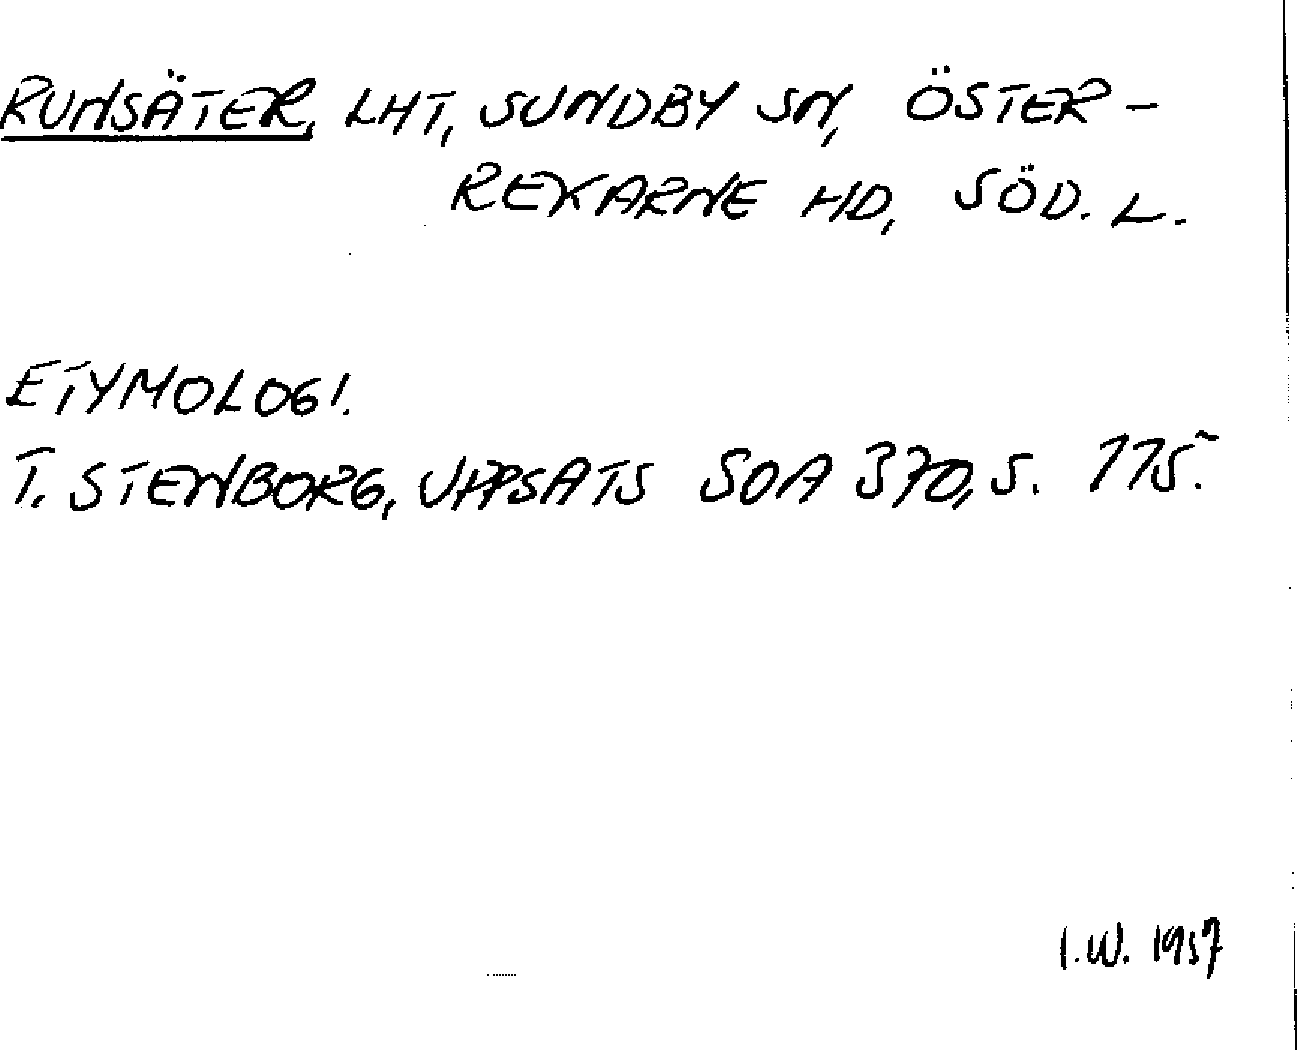 RUNSÄTER, LHT, SUNDBY SN, ÖSTER-
REKARNE HD, SÖD. L.
ETYMOLOGI.
T. STENBORG, UPPSATS SOA 370, S. 115.
I.W. 1957